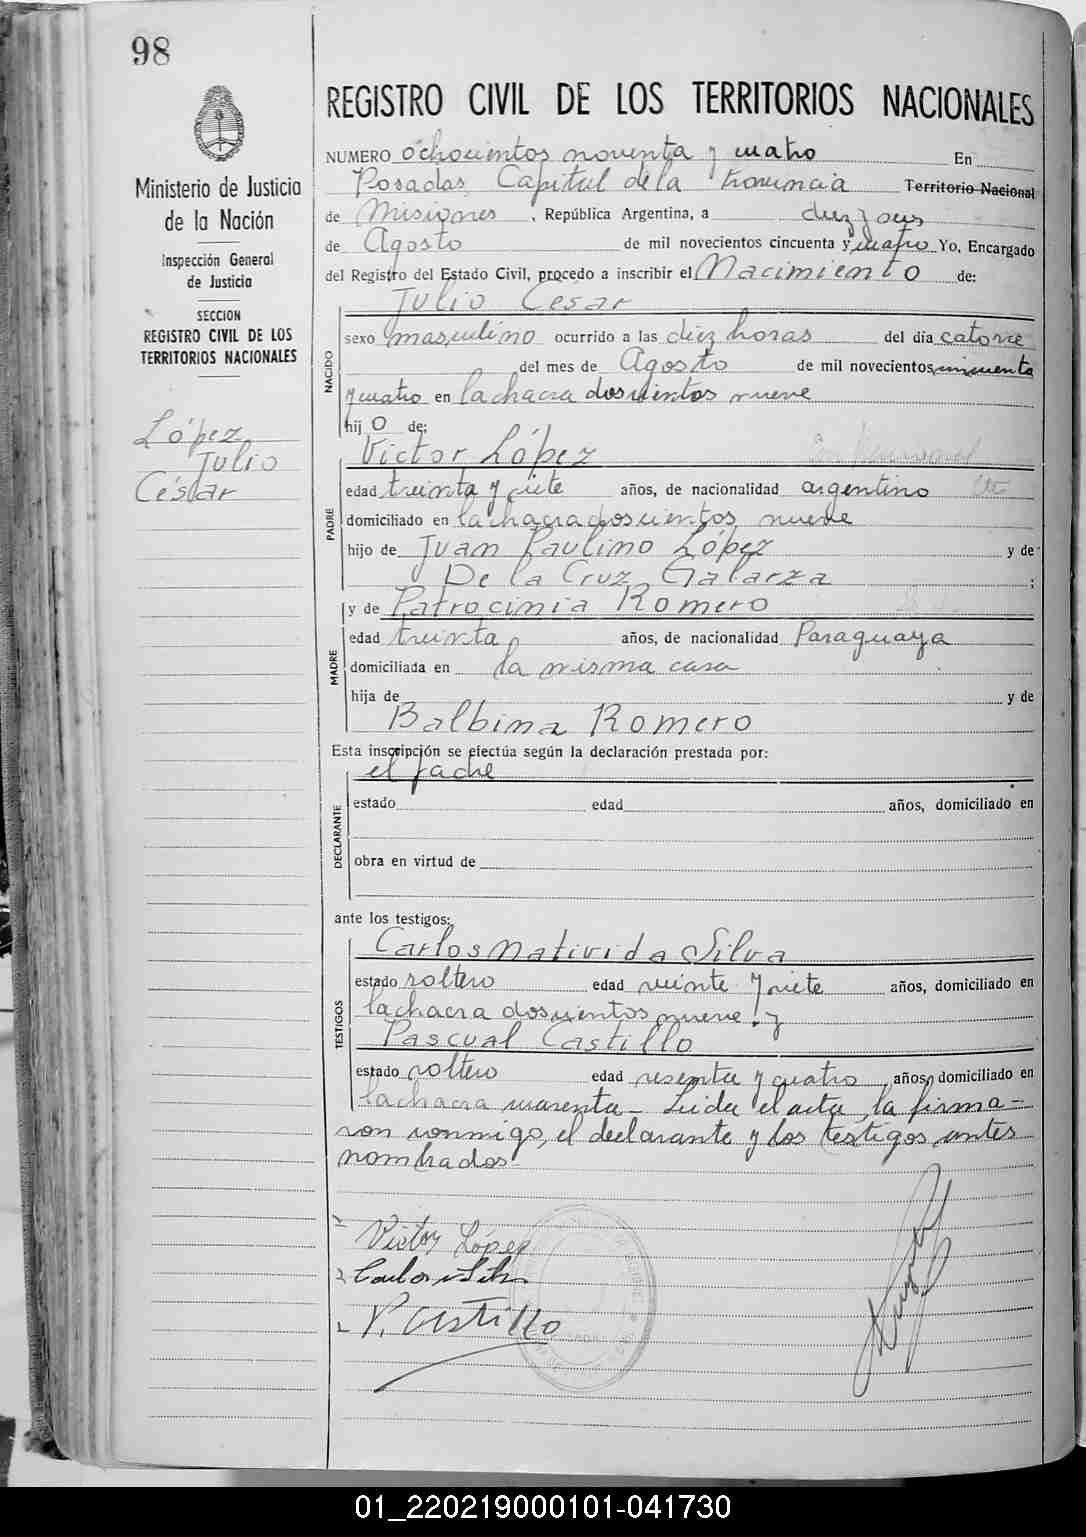 98
REGISTRO CIVIL DE LOS TERRITORIOS NACIONALES
Ministerio de Justicia
de la Nación
Inspección General
de Justicia
SECCION
REGISTRO CIVIL DE LOS
TERRITORIOS NACIONALES
López
Julio
César
NUMERO ochocientos noventa y cuatro En
Posadas Capital de la Provincia Territorio Nacional
de Misiones , República Argentina, a diez y seis
de Agosto de mil novecientos cincuenta y cuatro Yo, Encargado
del Registro del Estado Civil, procedo a inscribir el Nacimiento de:
Julio César
NACIDO
sexo masculino ocurrido a las diez horas del día catorce
del mes de Agosto de mil novecientos cincuenta
y cuatro en la chacra doscientos nueve
hij o de:
Victor López
PADRE
edad treinta y siete años, de nacionalidad argentino
domiciliado en la chacra doscientos nueve
hijo de Juan Paulino López y de
De la Cruz Galarza ;
y de Patrocinia Romero
MADRE
edad treinta años, de nacionalidad Paraguaya
domiciliada en la misma casa
hija de y de
Balbina Romero
Esta inscripción se efectúa según la declaración prestada por:
el padre
DECLARANTE
estado edad años, domiciliado en
obra en virtud de
ante los testigos:
Carlos Nativida Silva
TESTIGOS
estado soltero edad veinte y siete años, domiciliado en
la chacra doscientos nueve! y
Pascual Castillo
estado soltero edad sesenta y cuatro años, domiciliado en
la chacra cuarenta_ Leida el acta, la firma-
ron conmigo, el declarante y los testigos antes
nombrados.
Victor López
Carlos Silva
P. Castillo
01_220219000101-041730